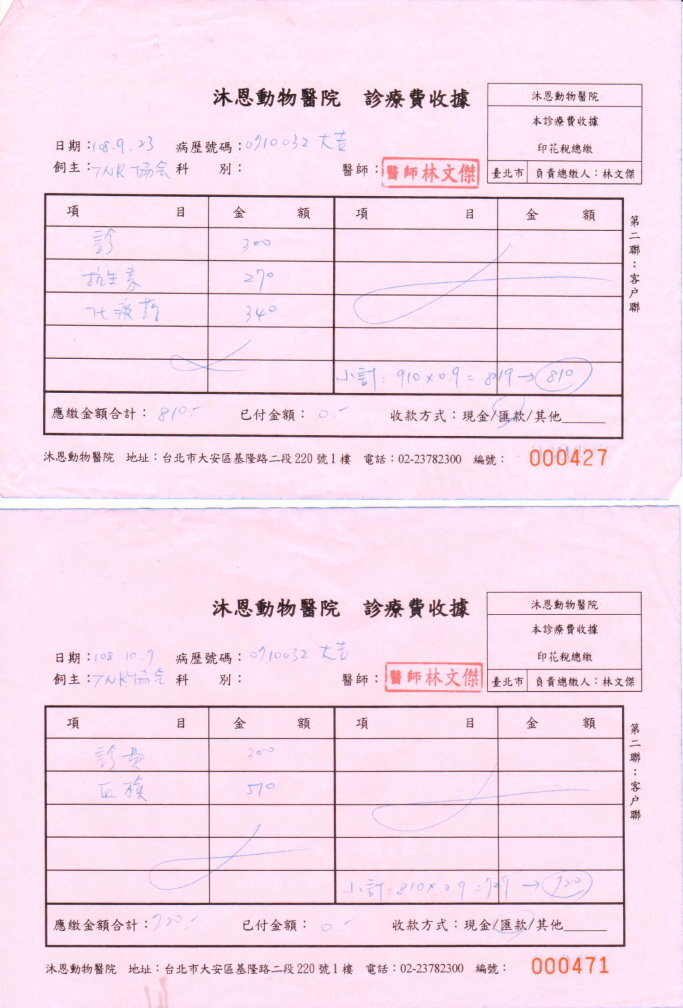 沐恩動物醫院 診療費收據
沐恩動物醫院
本診療費收據
印花稅總繳
臺北市 負責總繳人：林文傑
日期：108.9.23 病歷號碼：0910032 大吉
飼主：TNR協會 科 別： 醫師：醫師林文傑
項 目 金 額 項 目 金 額
診 300
抗生素 270
化痰药 340
小計：910×0.9=819→810
應繳金額合計：810.- 已付金額：0.- 收款方式：現金/匯款/其他______
第二聯：客戶聯
沐恩動物醫院 地址：台北市大安區基隆路二段220號1樓 電話：02-23782300 編號： 000427
沐恩動物醫院 診療費收據
沐恩動物醫院
本診療費收據
印花稅總繳
臺北市 負責總繳人：林文傑
日期：108 10.7 病歷號碼：0910032 大吉
飼主：TNR協會 科 別： 醫師：醫師林文傑
項 目 金 額 項 目 金 額
診費 300
血檢 510
小計：810×0.9=729→720
應繳金額合計：720.- 已付金額：0.- 收款方式：現金/匯款/其他______
第二聯：客戶聯
沐恩動物醫院 地址：台北市大安區基隆路二段220號1樓 電話：02-23782300 編號： 000471